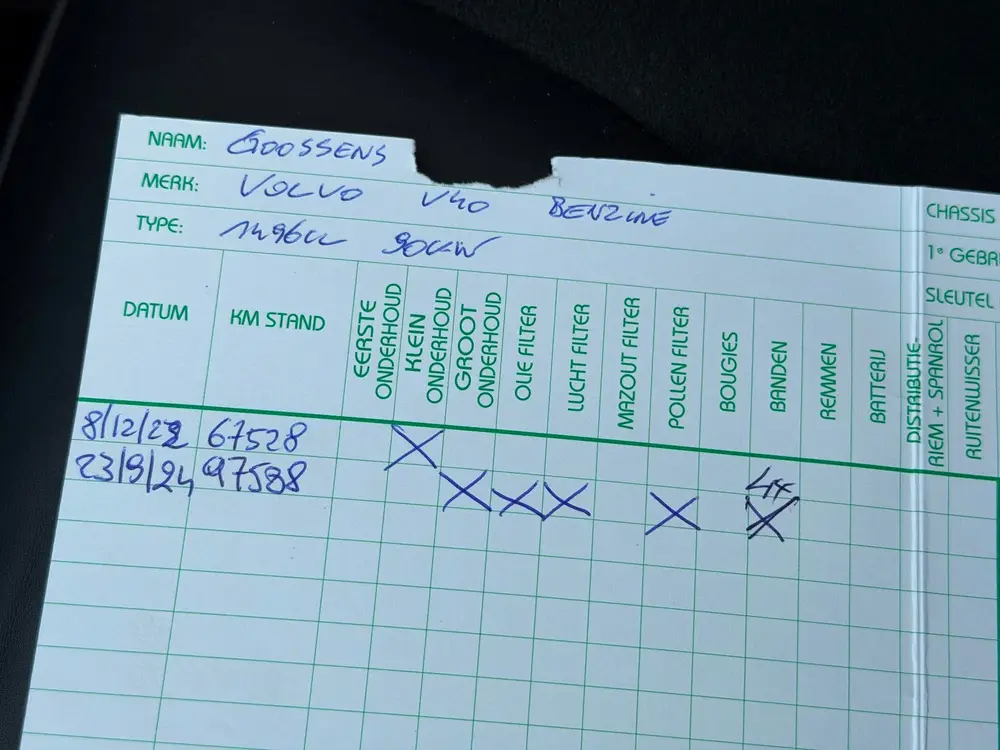 NAAM: GOOSSENS
MERK: VOLVO V40 BENZINE
TYPE: 1496cc 90KW
CHASSIS
1e GEBR
SLEUTEL
DATUM
KM STAND
EERSTE ONDERHOUD
KLEIN ONDERHOUD
GROOT ONDERHOUD
OLIE FILTER
LUCHT FILTER
MAZOUT FILTER
POLLEN FILTER
BOUGIES
BANDEN
REMMEN
BATTERIJ
DISTRIBUTIE-
RIEM + SPANROL
RUITENWISSER
8/12/22 67528 X
23/9/24 97588 X X X X 4x X